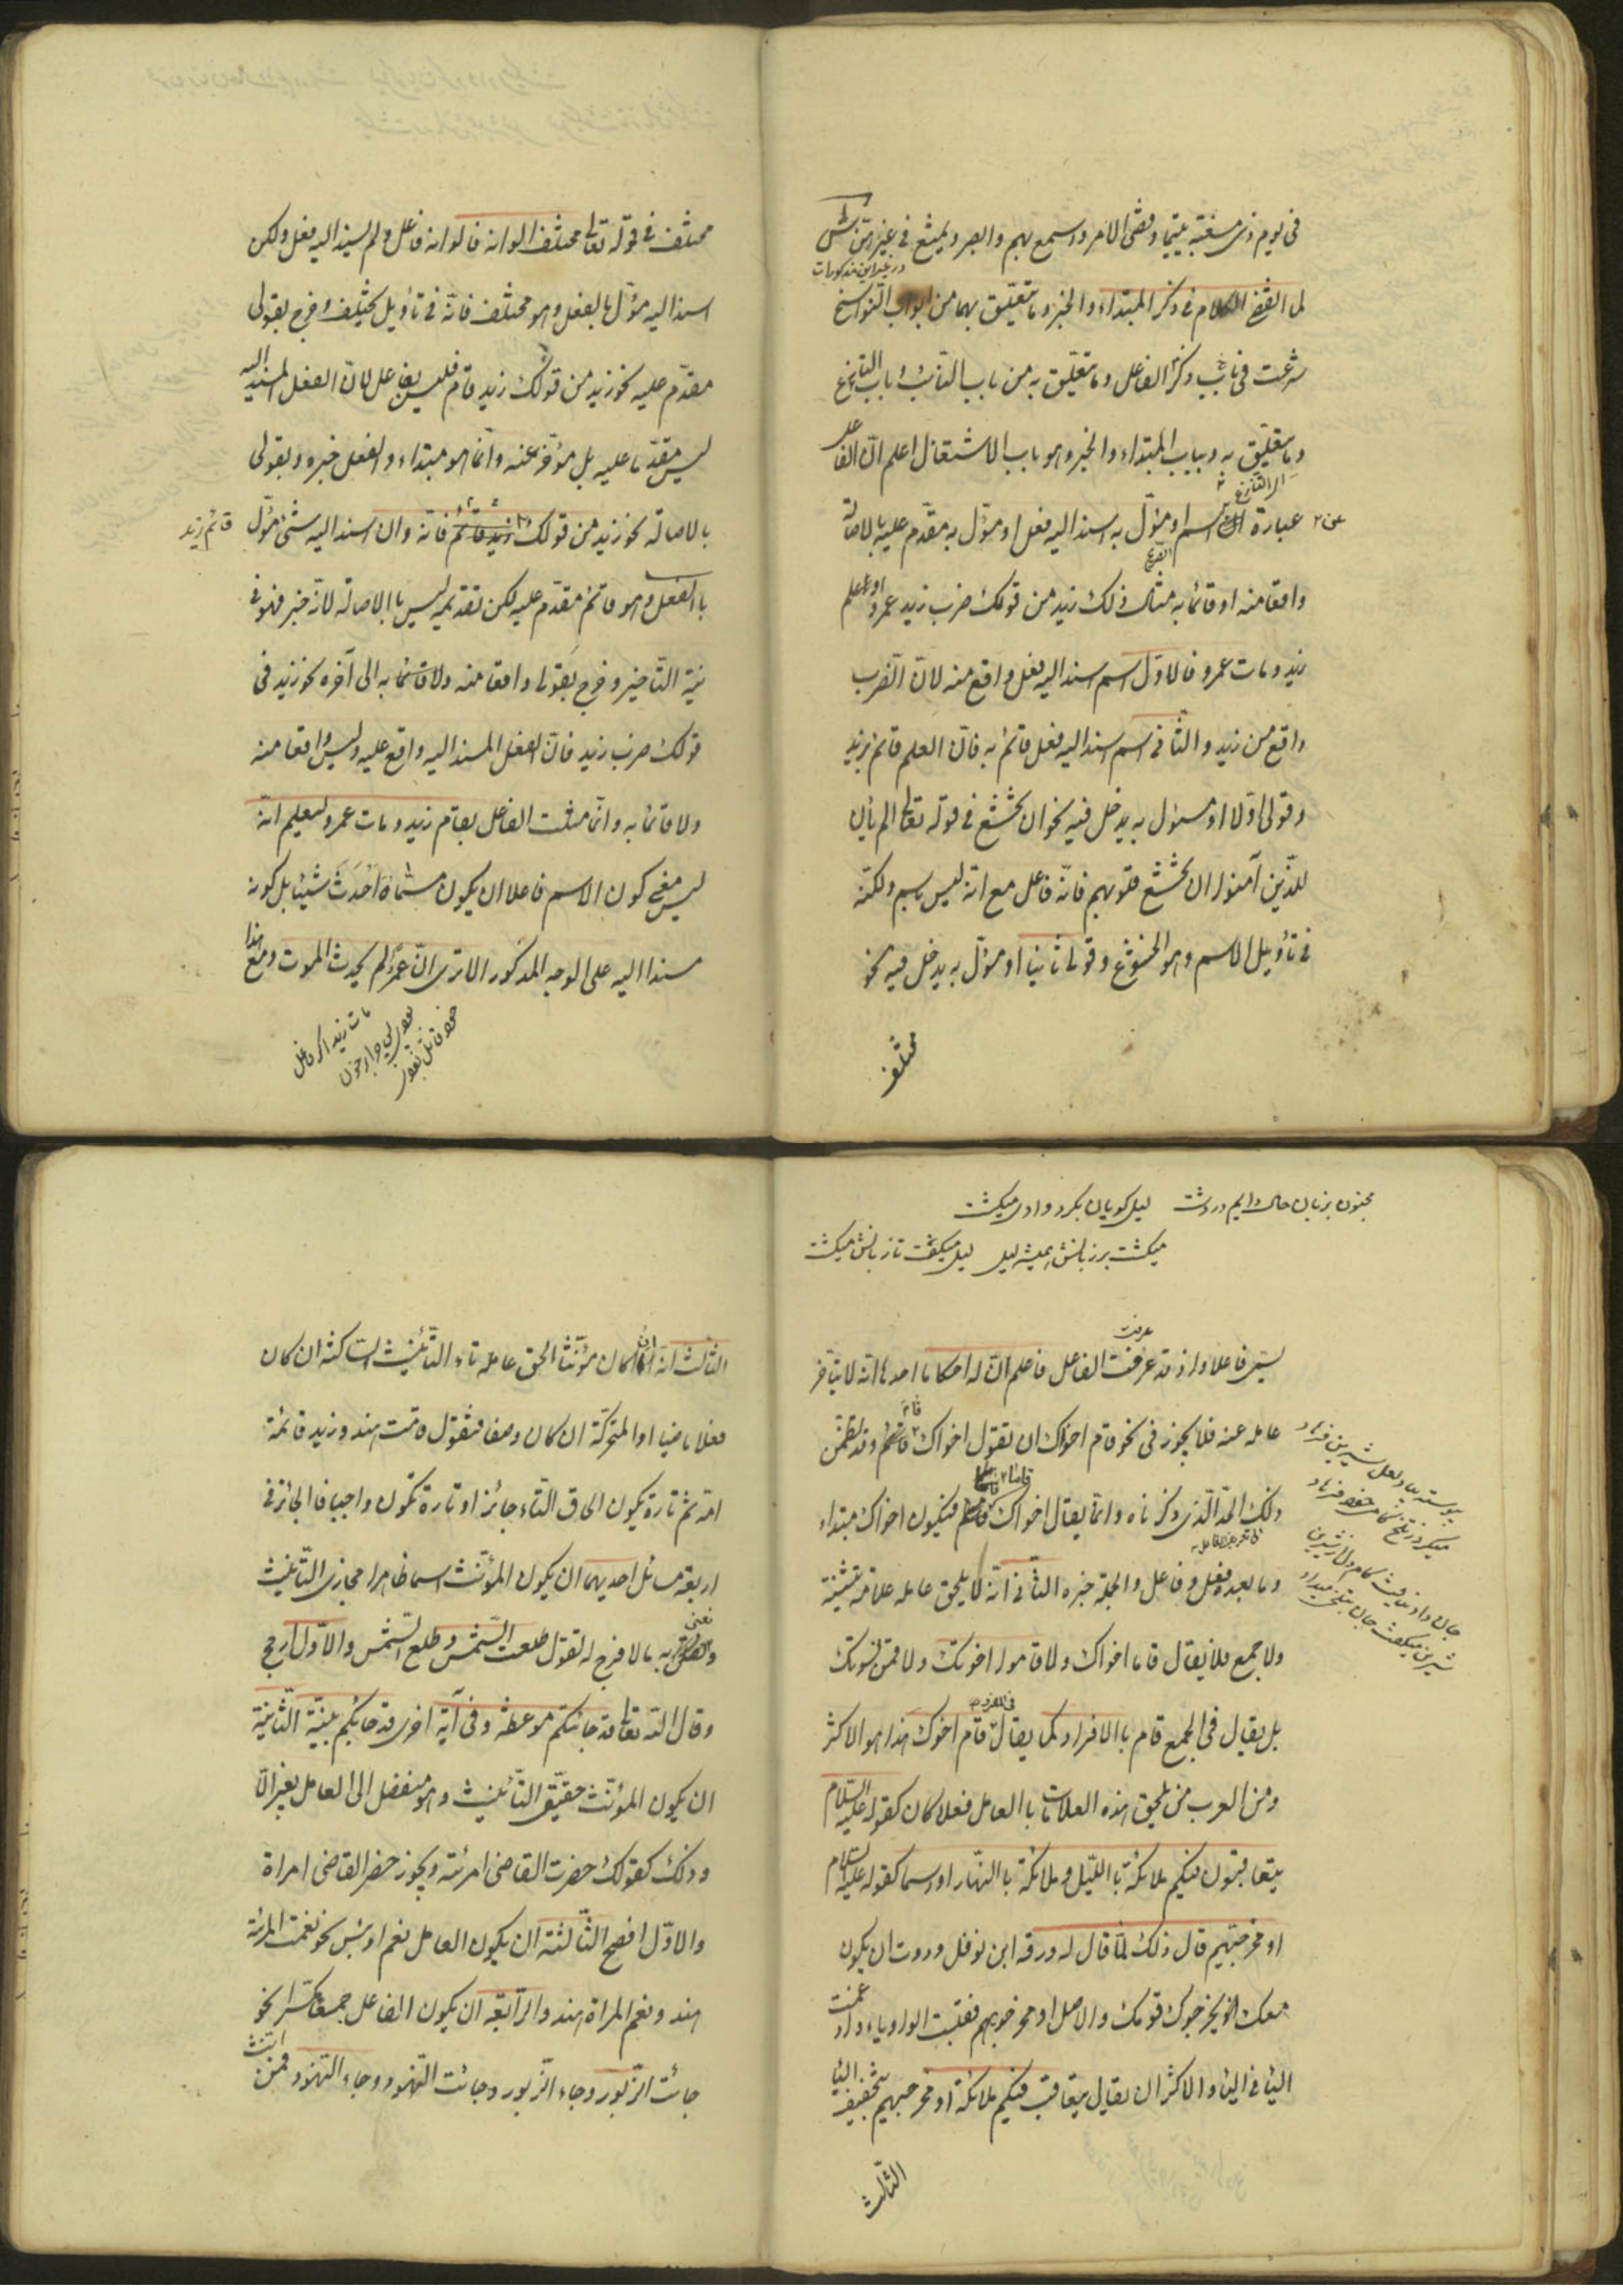 في يوم ذي مسغبة يتيما وقضي الامر واسمع بهم وابصر ويمتنع في غير
در غير اين مذكورات
لما انقضى الكلام في ذكر المبتداء والخبر وما يتعلق بهما من ابواب النواسخ
شرعت في باب ذكر الفاعل وما يتعلق به من باب النائب وباب التنازع
وما يتعلق به وبباب المبتداء والخبر وهو باب الاشتغال اعلم ان الفاعل
عبارة عن اسم او مؤل به اسند اليه فعل او مؤل به مقدم عليه بالاصالة
واقعا منه او قائما به مثال ذلك زيد من قولك ضرب زيد عمروا وعلم
زيد ومات عمرو فالاول اسم اسند اليه فعل واقع منه لان الضرب
واقع من زيد والثاني اسم اسند اليه فعل قائم به فان العلم قائم بزيد
وقولي اولا او مسؤل به يدخل فيه نحو ان تخشع في قوله تعالى الم يأن
للذين آمنوا ان تخشع قلوبهم فانه فاعل مع انه ليس باسم ولكنه
في تأويل الاسم وهو الخشوع وقولي ثانيا او مؤل به يدخل فيه نحو
مختلف
مختلف في قوله تعالى مختلف الوانه فالوانه فاعل ولم يسند اليه فعل ولكن
اسند اليه مؤل بالفعل وهو مختلف فانه في تأويل يختلف وخرج بقولي
مقدم عليه نحو زيد من قولك زيد قام فليس بفاعل لان الفعل المسند اليه
ليس مقدما عليه بل مؤخر عنه وانما هو مبتداء والفعل خبره وبقولي
بالاصالة نحو زيد من قولك زيد قائم فانه وان اسند اليه شئ مؤل
قائم زيد
بالفعل وهو قائم مقدم عليه لكن تقديمه ليس باالاصالة لانه خبر فهو في
نية التأخير وخرج بقولي واقعا منه ولا قائما به الى آخره نحو زيد في
قولك ضرب زيد فان الفعل المسند اليه واقع عليه وليس واقعا منه
ولا قائما به وانما مثلت الفاعل بقام زيد ومات عمرو ليعلم انه
ليس معنى كون الاسم فاعلا ان يكون مسماه احدث شيئا بل كونه
مسندا اليه على الوجه المذكور الا ترى ان عمرا لم يحدث الموت ومع هذا
مات زيد اگر فاعل
مجنون بزبان حال دايم در دشت ليلى گويان بگرد وادى ميگشت
ميگشت بر زبانش هميشه ليلى ليلى ميگفت تا زبانش ميگشت
يسمى فاعلا واذ قد عرفت الفاعل فاعلم ان له احكاما احدها انه لا يتأخر
عامله عنه فلا يجوز في نحو قام اخواك ان تقول اخواك قام وقد تضمن
ذلك الحد الذي ذكرناه وانما يقال اخواك قاما فيكون اخواك مبتداء
وما بعده فعل وفاعل والجملة خبره الثاني انه لا يلحق عامله علامة تثنية
ولا جمع فلا يقال قاما اخواك ولا قاموا اخوتك ولا قمن نسوتك
بل يقال في الجمع قام باالافراد كما يقال قام اخوك هذا هو الاكثر
ومن العرب من يلحق هذه العلامات باالعامل فعلا كان كقوله عليه السلام
يتعاقبون فيكم ملائكة باالليل وملائكة باالنهار او اسما كقوله عليه السلام
او مخرجيهم قال ذلك لما قال له ورقة ابن نوفل وددت ان يكون
معك اذ يخرجوك قومك والاصل او مخرجوهم فقلبت الواو ياء وادغمت
الياء في الياء والاكثر ان يقال يتعاقب فيكم ملائكة او مخرجيهم بتخفيف الياء
الثالث
الثالث انه ان كان مؤنثا لحق عامله تاء التأنيث الساكنة ان كان
فعلا ماضيا او المتحركة ان كان وصفا فتقول قامت هند وزيد قائمة
امه ثم تارة يكون الحاق التاء جائزا وتارة تكون واجبا فالجائز في
اربعة مسائل احديها ان يكون المؤنث اسما ظاهرا مجازى التأنيث
ونعنى به ما لا فرج له تقول طلعت الشمس وطلع الشمس والاول ارجح
وقال الله تعالى قد جائتكم موعظة وفي آية اخرى قد جائكم بينة الثانية
ان يكون المؤنث حقيقى التأنيث وهو منفصل الى العامل بغير الا
وذلك كقولك حضرت القاضى امرئة ويجوز حضر القاضى امراة
والاول افصح الثالثة ان يكون العامل نعم او بئس نحو نعمت المرئة
هند ونعم المراة هند والرابعة ان يكون الفاعل جمعا مكسرا نحو
جائت الزبور وجاء الزبور وجائت الهنود وجاء الهنود فمن انث